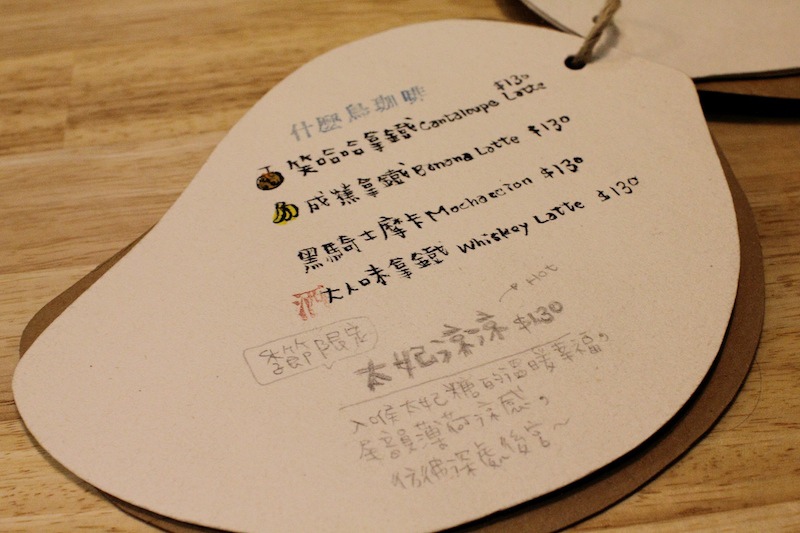 什麼鳥咖啡
笑哈哈拿鐵 Cantaloupe Latte $130
成蕉拿鐵 Banana Latte $130
黑騎士摩卡 Mochaccion $130
酒 大人味拿鐵 Whiskey Latte $130
季節限定 太妃涼涼 $130 → Hot
入喉太妃糖的溫暖幸福,
尾韻薄荷涼感,
彷彿深處後宮~